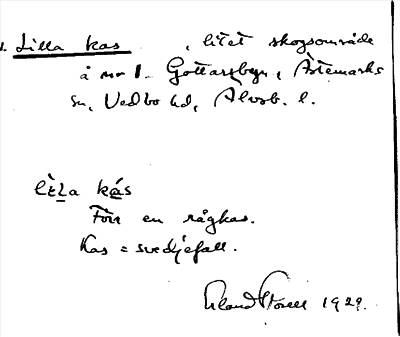 1. Lilla kas, litet skogsområde
å nr 1 Gottarsbyn, Ärtemarks
sn, Vedbo hd, Älvsb. l.
lɩ̀la kás
Förr en rågkas.
Kas = svedjefall.
1929.